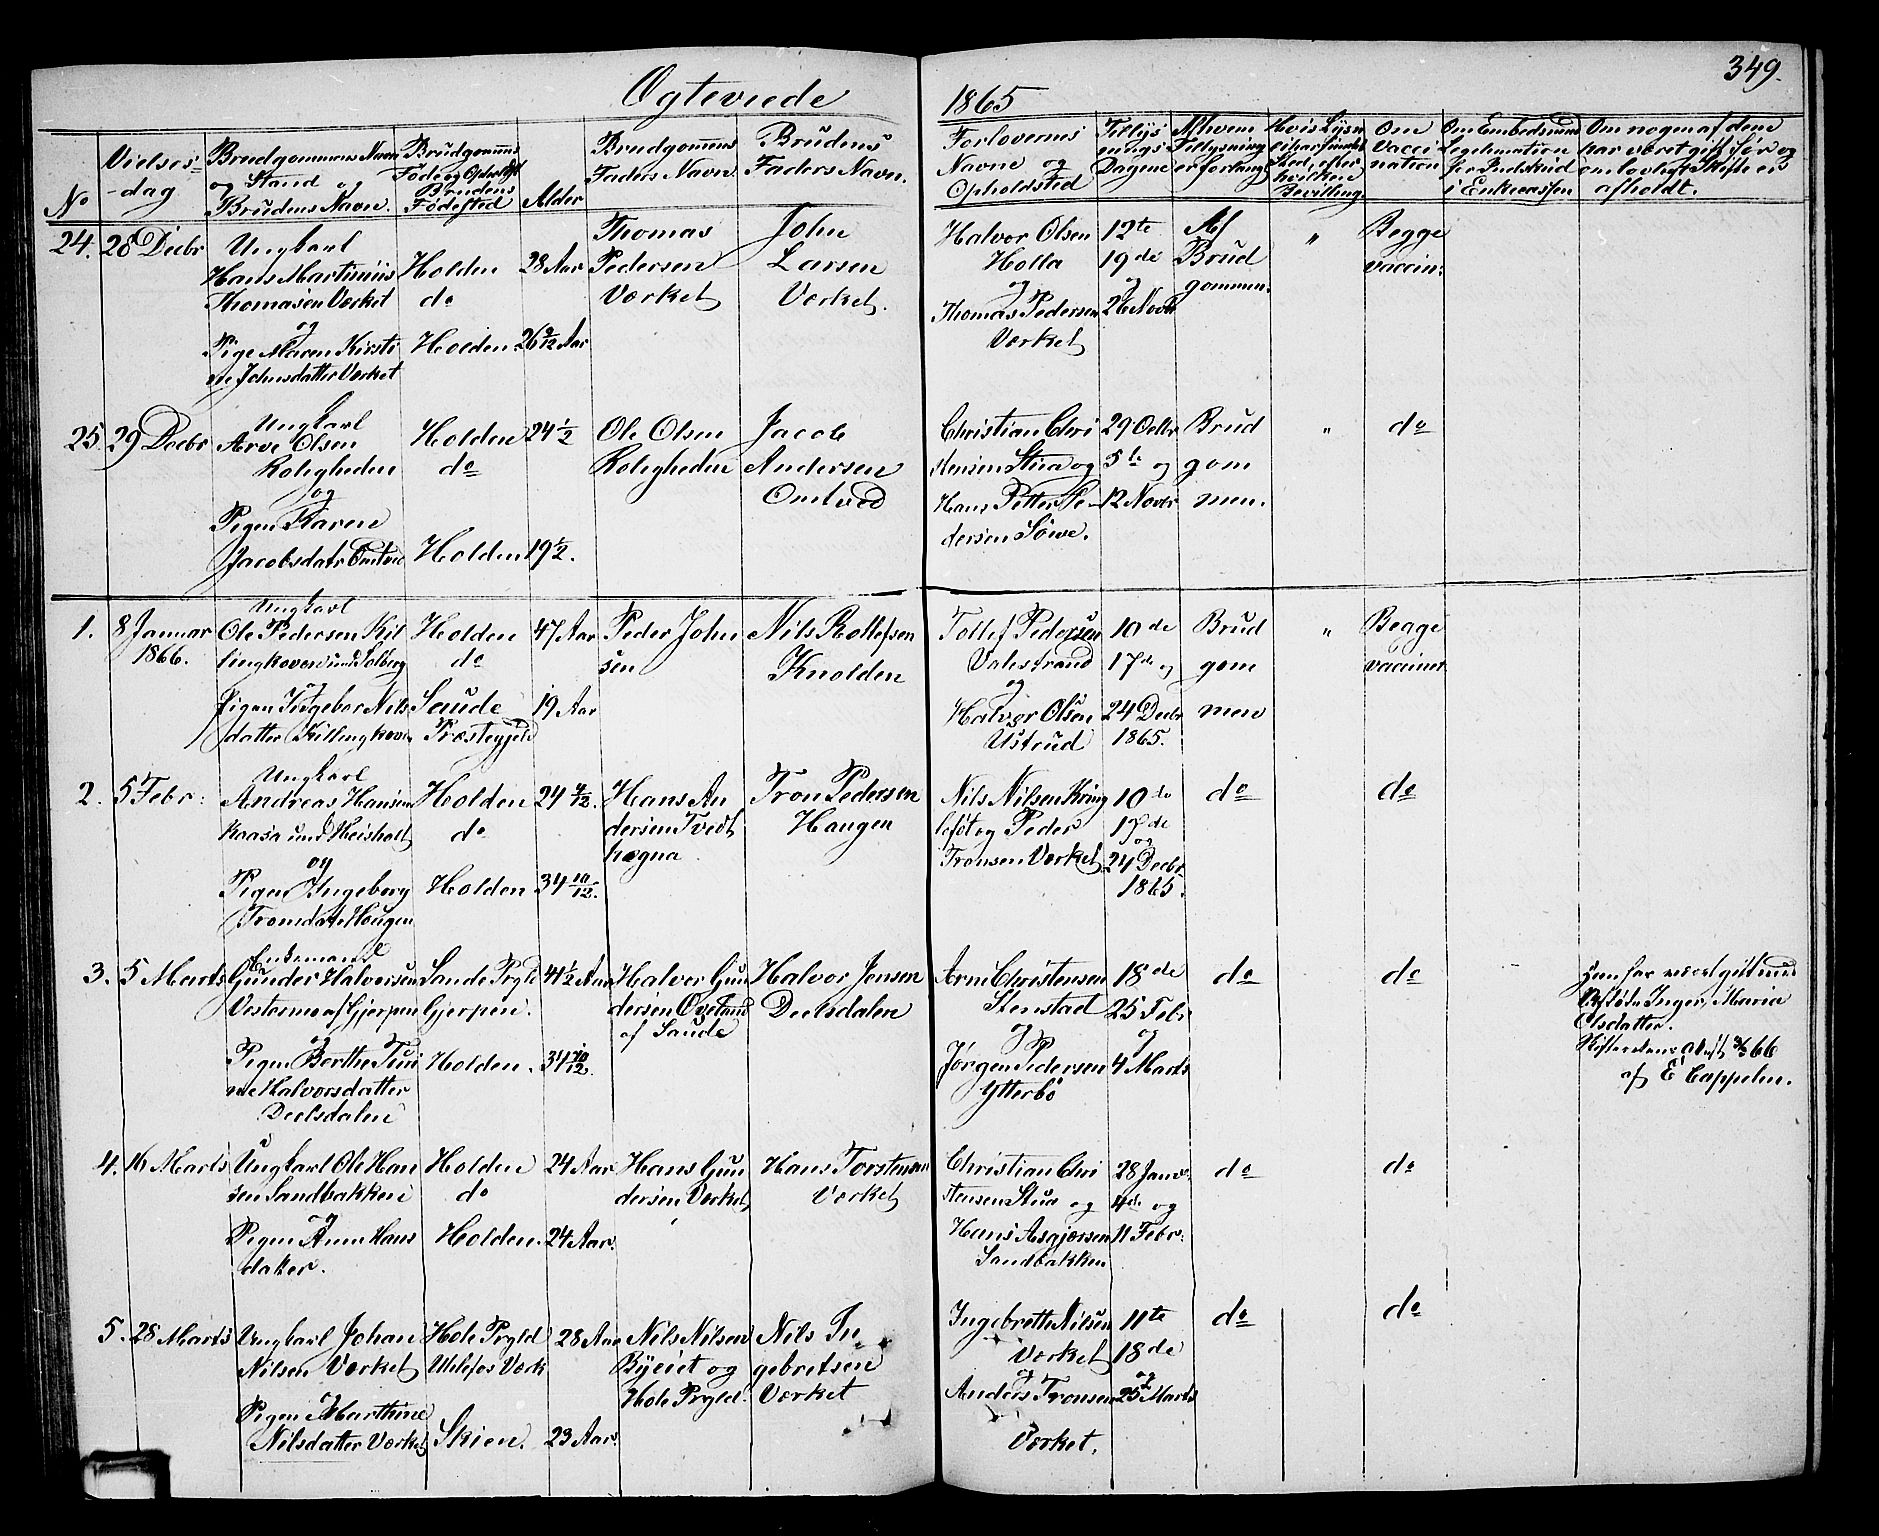 349.
Ogteviede
1865
No
Vielses-
-dag
Brudgommens Navn
og Stand og
Brudens Navn.
Brudgomms
Føde og Opholdst
Brudens
Fødested
Alder
Brudgommens
Faders Navn.
Brudens
Faders Navn.
Forlovernes
Navne og
Opholdsted
Tillys
nings
Dagene
Af hvem
Tillysning
er forlangt
Om
Vacci
nation
Om Embedsmand
Legitimation
Om nogen af dem
har været gift før og
om lovligt Skifte er
afholdt.
24. 28 Decbr
Ungkarl
Hans Martinius
Thomasen Værket
og
Pige Maren Kirsti
ne Johnsdatter Værket
Holden
do
Holden
28 Aar
26 9/12 Aar
Thomas
Pedersen
Værket
John
Larsen
Værket.
Halvor Olsen
Holla
og
Thomas Pedersen
Værket
12te
19de
og
26 Novb
Af
Brud
gommen.
"
Begge
vaccin.
25. 29 Decbr
Ungkarl
Arve Olsen
Roligheden
og
Pigen Karen
Jacobsdatr Omtved
Holden
do
Holden
24 1/2
19 1/2.
Ole Olsen
Roligheden
Jacob
Andersen
Omtved
Christian Chri
stensen Stua og
Hans Petter Pe-
dersen Sørve.
29 Octbr
5te og
12 Novbr
Brud
gom
men.
"
do
1. 8 Januar
1866.
Ungkarl
Ole Pedersen Kil
lingkoven und Solberg
og
Pigen Ingebor Nils
datter Killingkoven
Holden
do
Saude
Præstegjeld
47 Aar
19 Aar
Peder John
sen
Nils Rollefsen
Knolden
Tollef Pedersen
Valestrand
og
Halvor Olsen
Ustrud
10de
17de og
24 Decbr
1865.
Brud
gom
men
"
Begge
vaccinert
2. 5 Febr:
Ungkarl
Andreas Hansen
Kaasa und Heisholt
og
Pigen Ingeborg
Tronsdatr Haugen
Holden
do
Holden
24 9/12.
34 10/12.
Hans An
dersen Tvedt
hægna
Tron Pedersen
Haugen
Nils Nilsen Kring
lefot og Peder
Tronsen Værket
10de
17de
og
24 Decbr
1865.
do
do
3. 5 Marts
Enkemand
Gunder Halvorsen
Vestermo af Gjerpen
og
Pigen Berthe Turi
ne Halvorsdatter
Deelsdalen
Sande Pryld
Gjerpen.
Holden.
41 1/2 Aar
34 10/12.
Halvor Gun
dersen Ogeland
af Saude
Halvor Jensen
Deelsdalen
Arn Christensen
Stenstad
og
Jørgen Pedersen
Ytterbø
18de
25 Febr
og
4 Marts
do
do
Han har været gift med
Inger Maria
Olsdatter.
66
af E Cappelen.
4. 16 Marts
Ungkarl Ole Han
sen Sandbakken
og
Pigen Anne Hans
datter.
Holden
do
Holden.
24 Aar
24 Aar.
Hans Gun
dersen Værket
Hans Torstensen
Værket
Christian Chri
stensen Stua og
Hans Asgjersen
Sandbakken
28 Janr.
4de og
11 Febr:
do
do
5. 28 Marts
Ungkarl Johan
Nilsen Værket
og
Pigen Marthine
Nilsdatter Værket
Hole Pryld
Ulefos Værk
Skien.
28 Aar
23 Aar.
Nils Nilsen
Byeiet og
Hole Pryld.
Nils In
gebretsen
Værket
Ingebreth Nilsen
Værket
og
Anders Tronsen
Værket.
11te
18de
og
25 Marts
do
do